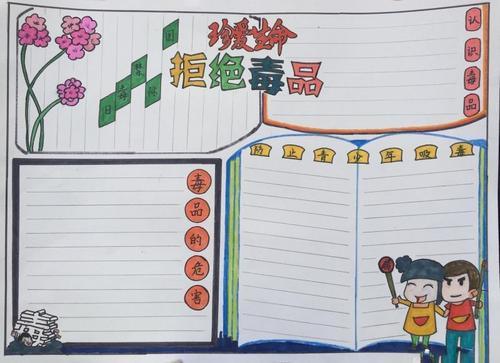 珍爱生命
拒绝毒品
国际禁毒日
认识毒品
防止青少年吸毒
毒品的危害